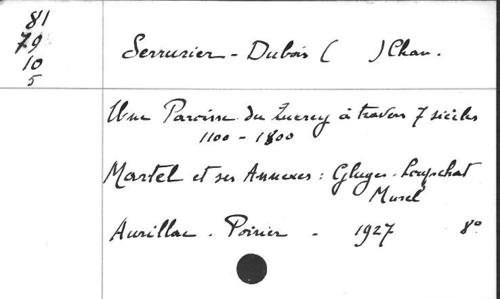 81
79
10
5
Serrurier - Dubois ( ) Chan.
Une Paroisse du Quercy à travers 7 siècles
1100 - 1800
Martel et ses Annexes : Gluges - Loupchat
Murel
Aurillac . Poirier - 1927 8°